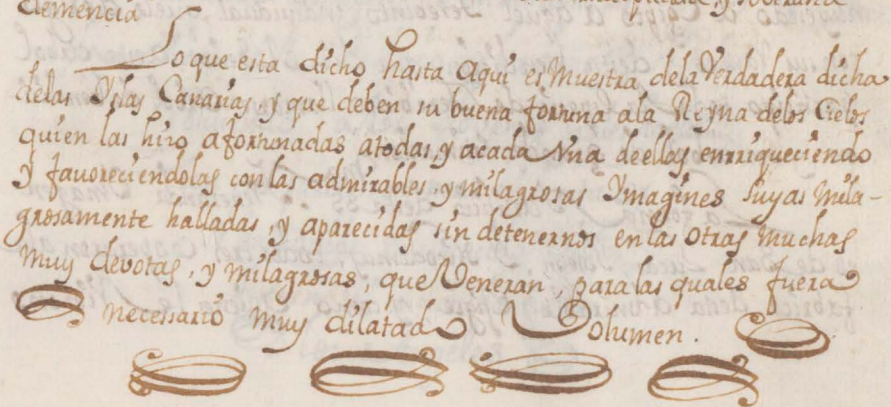 clemencia
Lo que esta dicho, hasta aqui es muestra dela Verdadera dicha
delas Yslas Canarias, y que deben su buena fortuna ala Reyna delos Cielos
quien las hizo afortunadas atodas, y acada Vna deellas enrriqueciendo
y favoreciendolas con las admirables, y milagrosas Ymagines suyas mila-
grosamente halladas, y aparecidas sin detenernos en las otras muchas
muy devotas, y milagrosas, que Veneran, para las quales fuera
necessario muy dilatado Volumen.